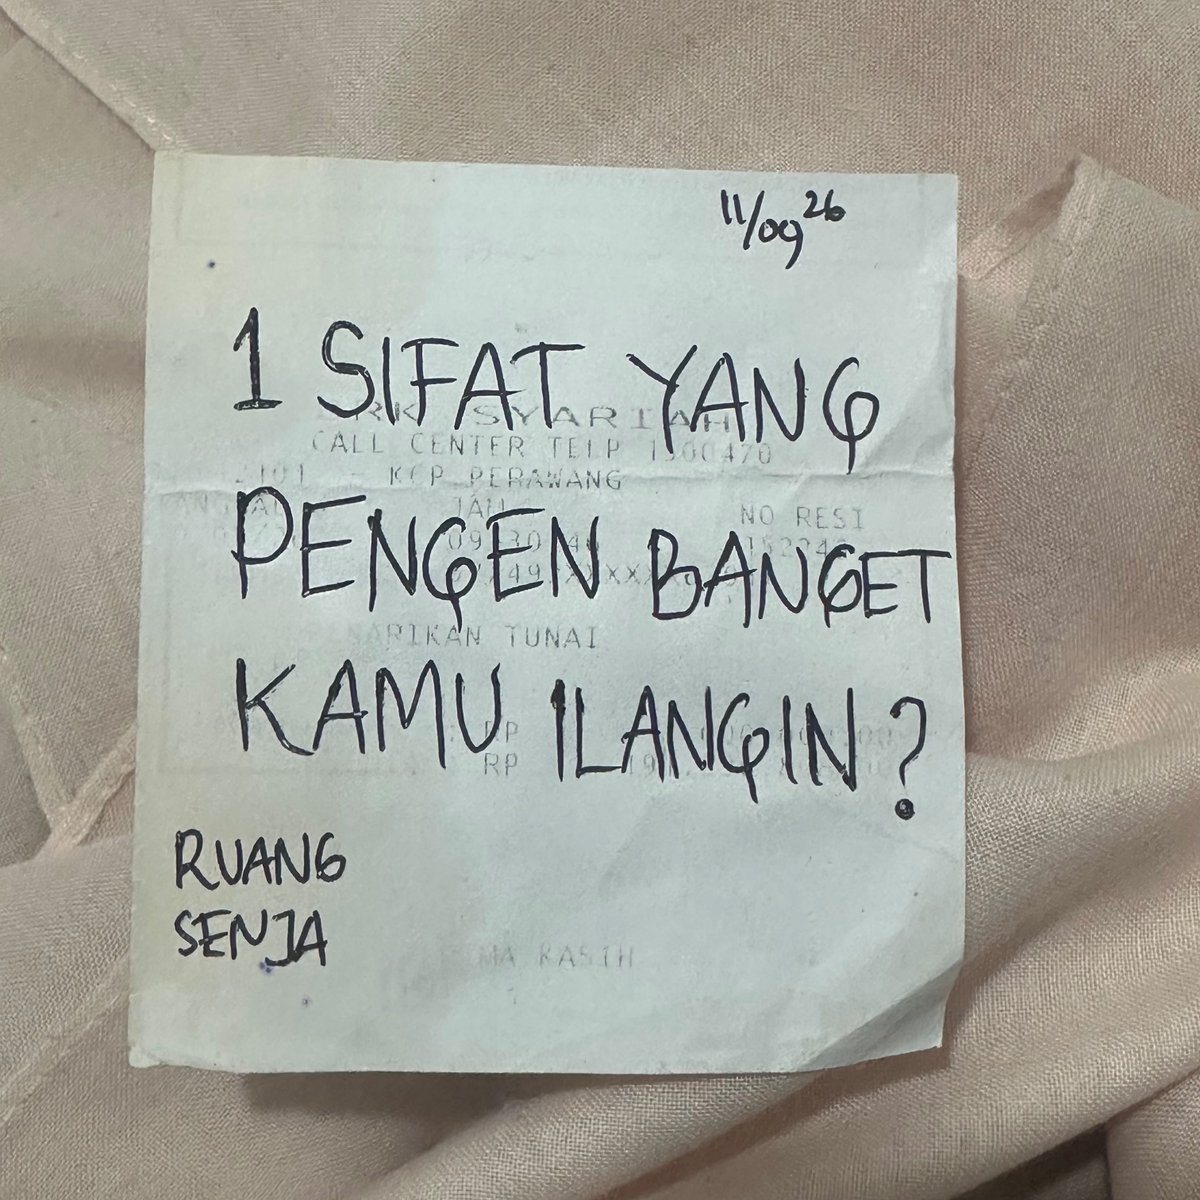 11/09 26
1 SIFAT YANG
PENGEN BANGET
KAMU ILANGIN?
RUANG
SENJA
SYARIAH
CALL CENTER TELP 1500470
KCP PERAWANG
NO RESI
TUNAI
RP
RP
KASIH